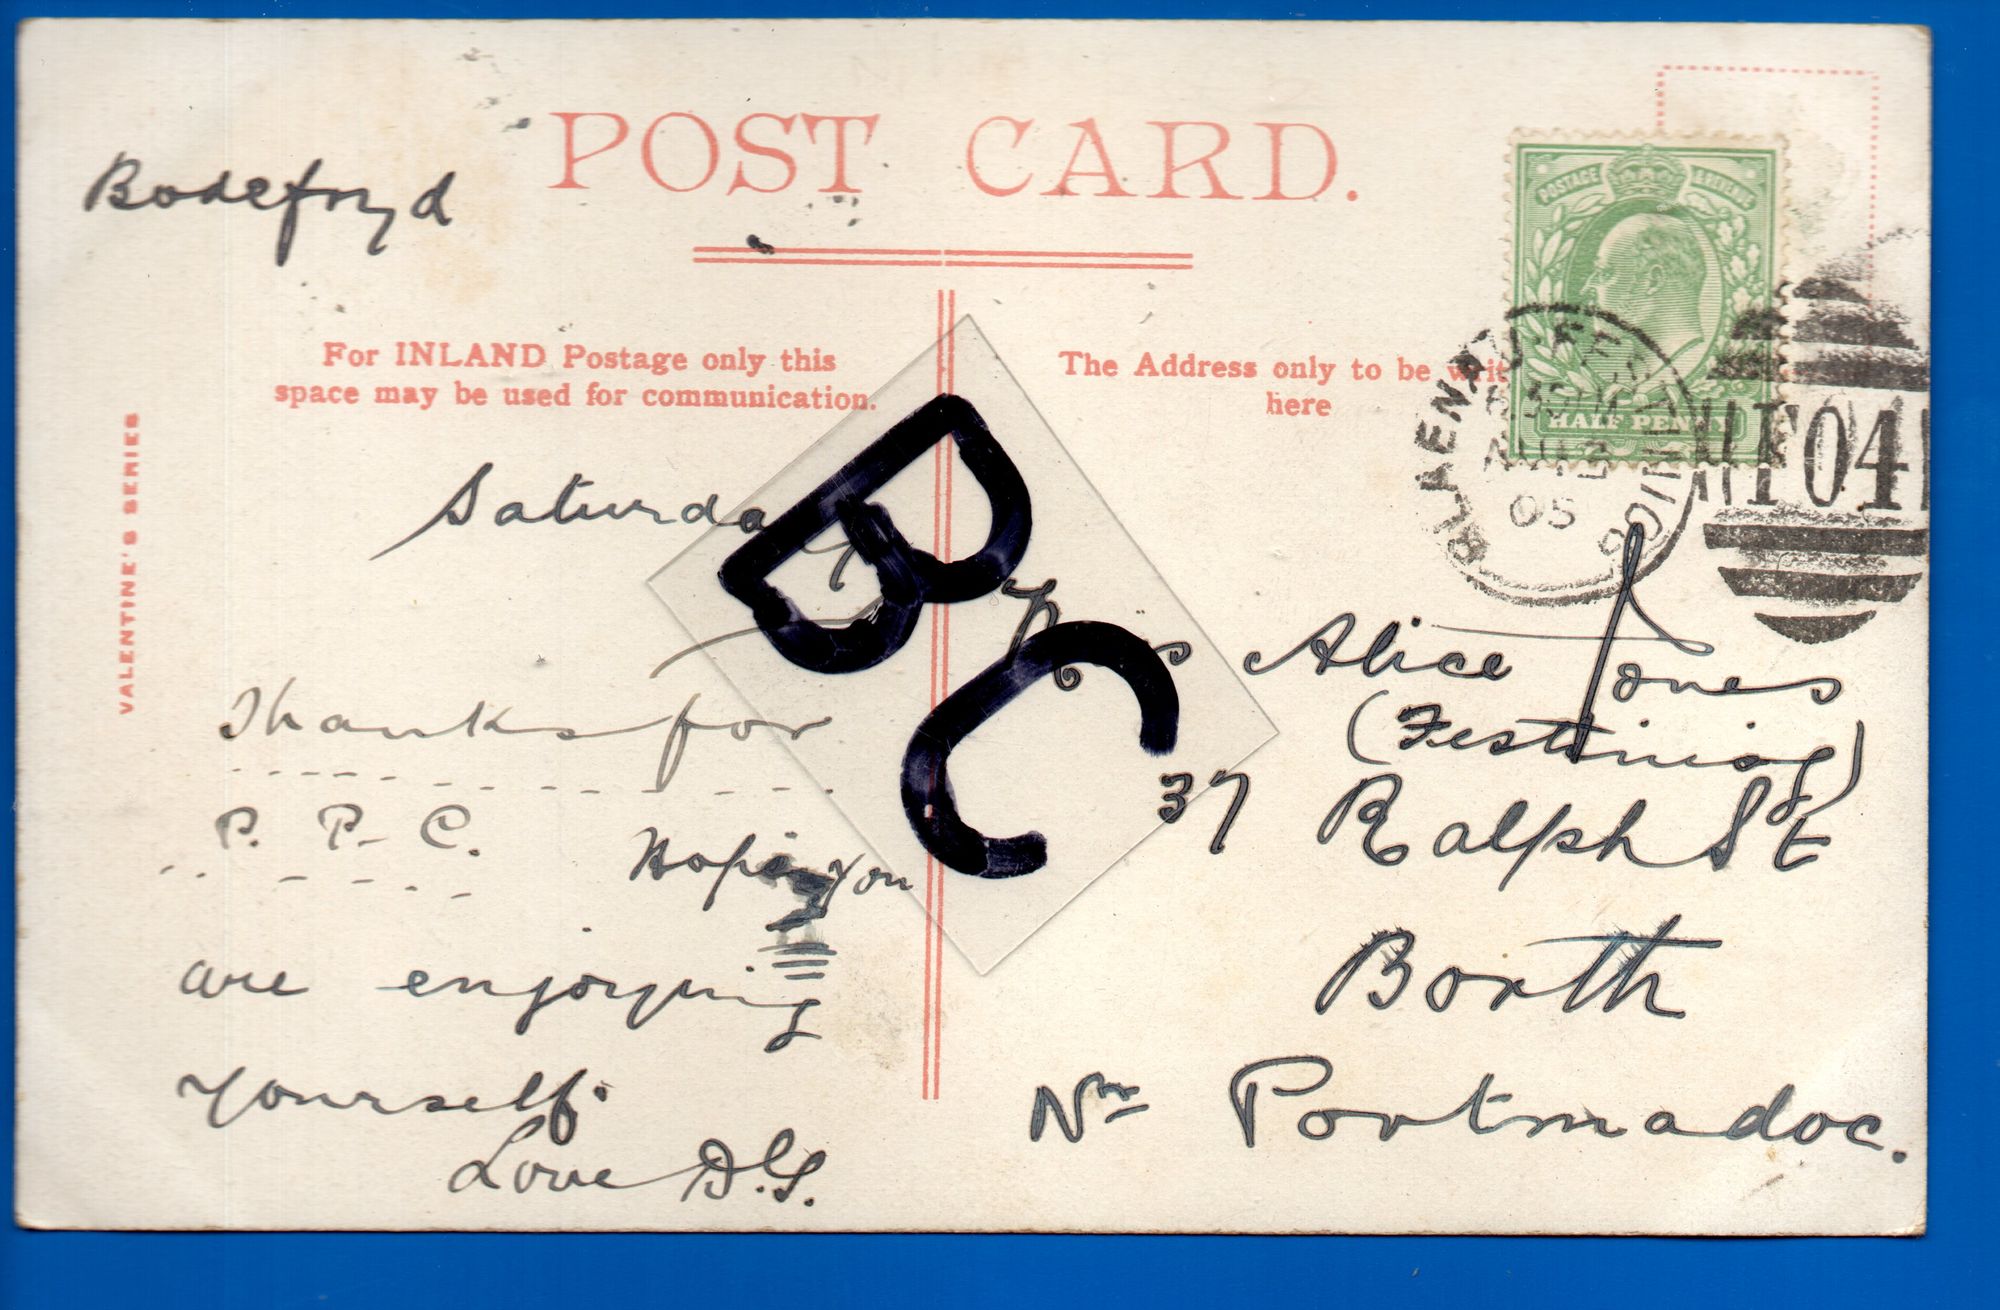 POST CARD.
Bodefryd
For INLAND Postage only this
space may be used for communication.
The Address only to be writ
here
VALENTINE'S SERIES
POSTAGE & REVENUE
HALF PENNY
BLAENAU-FESTINIOG
AU 12
05
T04
BC
Saturday
Thanks for
P. P. C. Hope you
are enjoying
yourself.
Love D.G.
Miss Alice Jones
(Festiniog)
37 Ralph St
Borth
Nr Portmadoc.